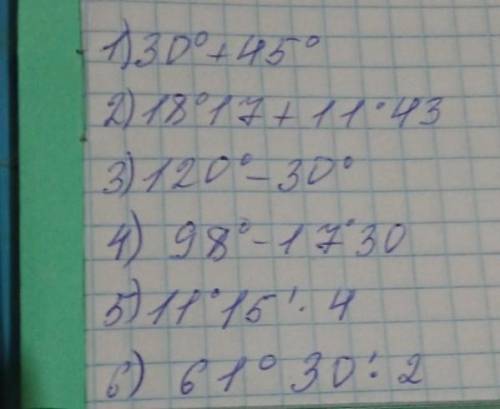 1) 30° + 45°
2) 18°17 + 11°43
3) 120° - 30°
4) 98° - 17°30
5) 11°15' · 4
6) 61° 30' : 2